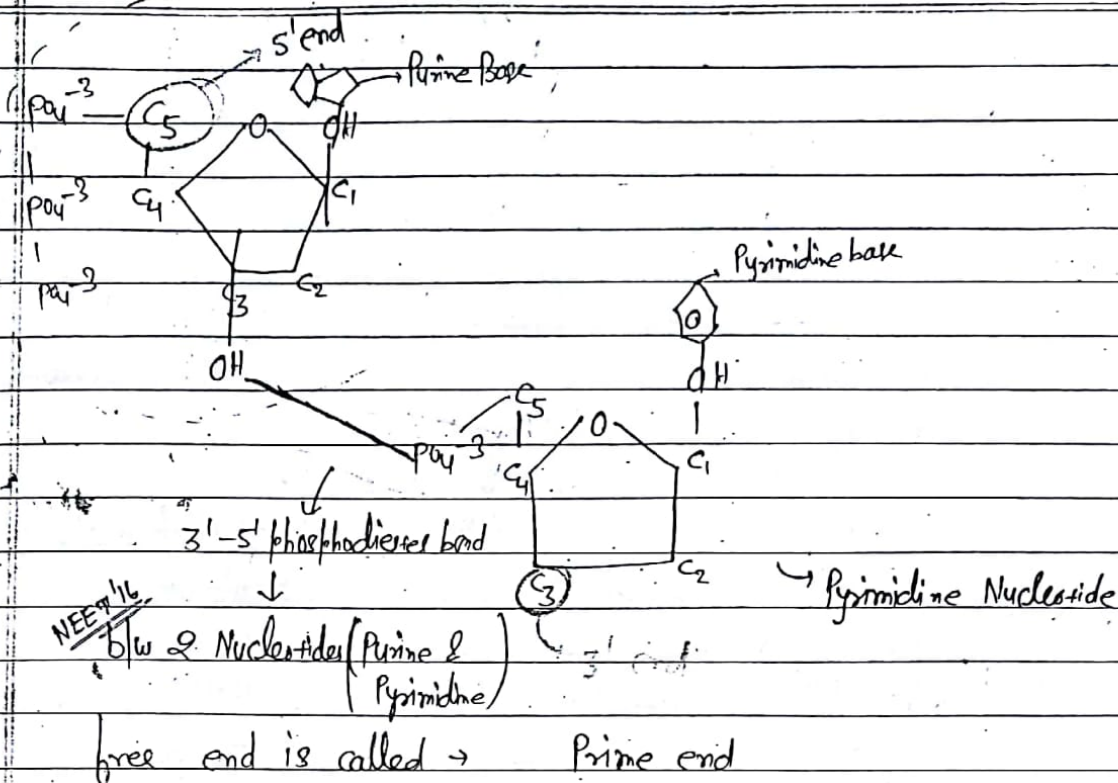 5' end
Purine Base
PO4^-3 — C5 O OH
PO4^-3 C4 C1
PO4^-3 C3 C2
OH
Pyrimidine base
O
OH
C5 O
PO4^-3 C4 C1
3'-5' phosphodiester bond
C3 C2
→ Pyrimidine Nucleotide
NEET'16
b/w 2 Nucleotides (Purine & Pyrimidine)
3' end
free end is called → Prime end